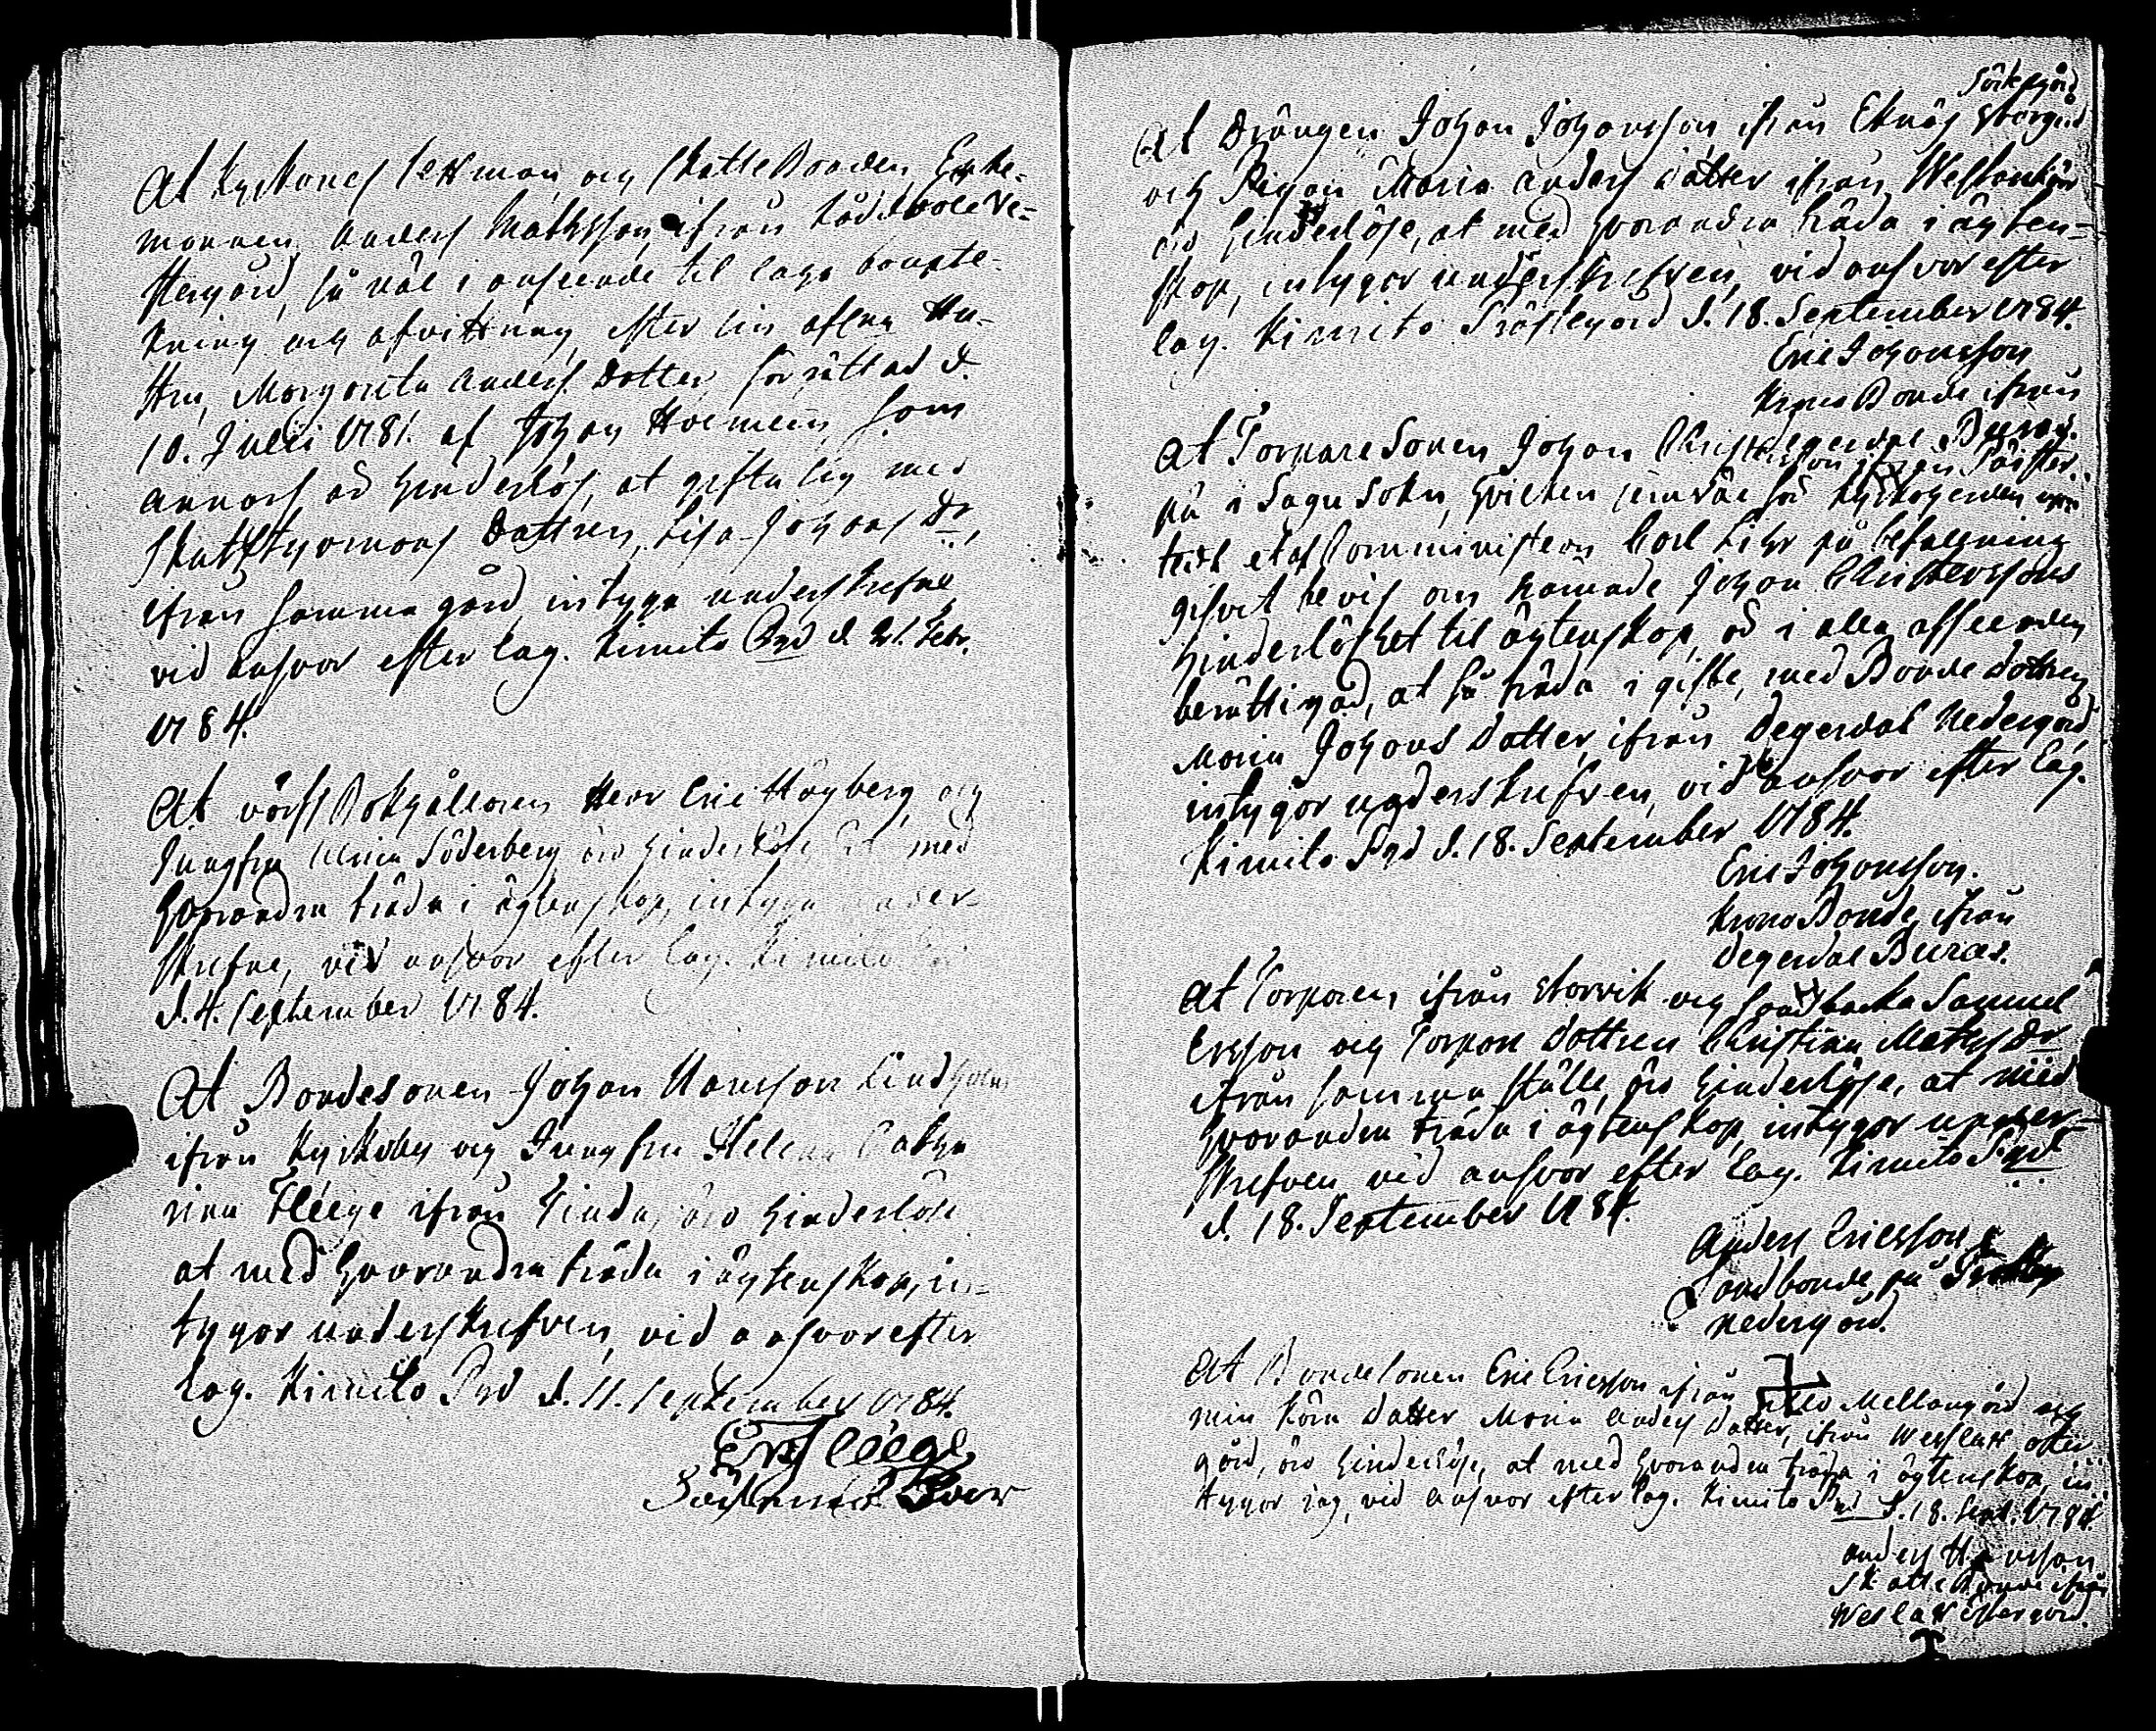 At Kyrkones Sexman och Skatte Bonden Enke-
mannen Anders Mathsson, ifrån
Stergård, så väl i anseende til laga boupte-
kning och afvittring, efter sin aflna Hu-
stru, Margareta Anders Dotter, förrättad d.
10. Julii 1781. af Johan som
annars är hinderlös, at gifta sig med
Skattstyomans Dottren, Lisa Johans Dr,
ifrån samma gård, intyga underskrefne
vid ansvar efter lag. Kimito Pgd d. 21. Febr.
1784.
At Bokhållaren Herr Eric Högberg och
Jungfru Ulrica Söderberg äro hinderlöse at med
hvarandra träda i ägtenskap, intyga under-
skrefne, vid ansvar efter lag. Kimito
d. 4. September 1784.
At Bondesonen Johan Hansson Lindholm
ifrån Kyrkoby och Jungfru Helena Catha
rina Fleege ifrån äro hinderlöse
at med hvarandra träda i ägtenskap, in-
tygar underskrefven, vid ansvar efter
lag. Kimito Pgd d. 11. September 1784.
Er. Fleege
Sörkesgård
At Drängen Johan Johansson, ifrån Eknäs Storgård
och Pigan Maria Anders Dotter ifrån Westankärr
äro hinderlöse, at med hvarandra träda i ägten-
skap, intygar underskrefven, vid ansvar efter
lag. Kimito Prästegård d. 18. September 1784.
Eric Johansson
Krono Bonde ifrån
Degerdal Buras.
At Torpare Sonen Johan Christersson ifrån
på i Sagu Sokn, hvilken jemväl för Kyrkoherden
tedt et af Comministern Carl Lihr på befallning
gifvit bevis om nämnde Johan Christerssons
hinderlöshet til ägtenskap, är i alla afseenden
berättigad, at få träda i gifte, med Bonde Dottren
Maria Johans Dotter, ifrån Degerdal Nedergård
intygar underskrefven, vid ansvar efter lag.
Kimito Pgd d. 18. September 1784.
Eric Johansson.
Krono Bonde, ifrån
Degerdal Buras.
At Torparen ifrån Storvik och Sandbacka Samuel
Ersson och Torpare Dottren Christina Mats Dr
ifrån samma ställe, äro hinderlöse, at med
hvarandra träda i ägtenskap, intygar under-
skrefven vid ansvar efter lag. Kimito Pgd
d. 18. September 1784.
Anders Ericsson
Landbonde på
Nedergård.
At Bondesonen Eric Ericsson ifrån Mellangård och
min kära Dotter Maria Anders Dotter, ifrån Westlax Öster
gård, äro hinderlöse, at med hvarandra träda i ägtenskap, in
tygar jag, vid ansvar efter lag. Kimito Pgd d. 18. Sept. 1784.
Anders Hansson
Skatte Bonde ifrån
Westlax Östergård.